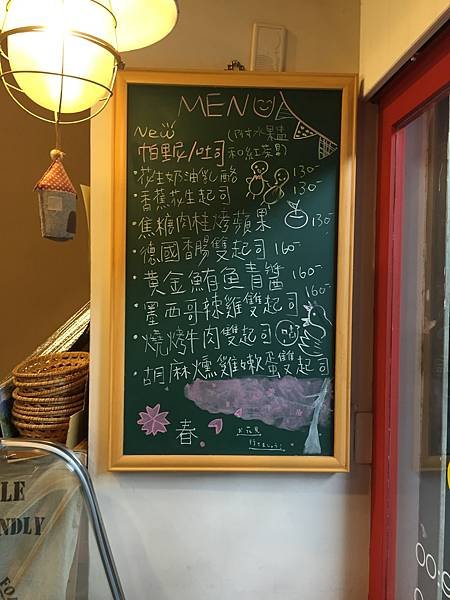 MENU
New
帕里尼/吐司(附水果盅
和紅茶)
・花生奶油乳酪 130-
・香蕉花生起司 130-
・焦糖肉桂烤蘋果 130-
・德國香腸雙起司 160-
・黃金鮪魚青醬 160-
・墨西哥辣雞雙起司 160-
・燒烤牛肉雙起司
・胡麻燻雞嫩蛋雙起司
春
お花見
行きましょう!
LE
NDLY